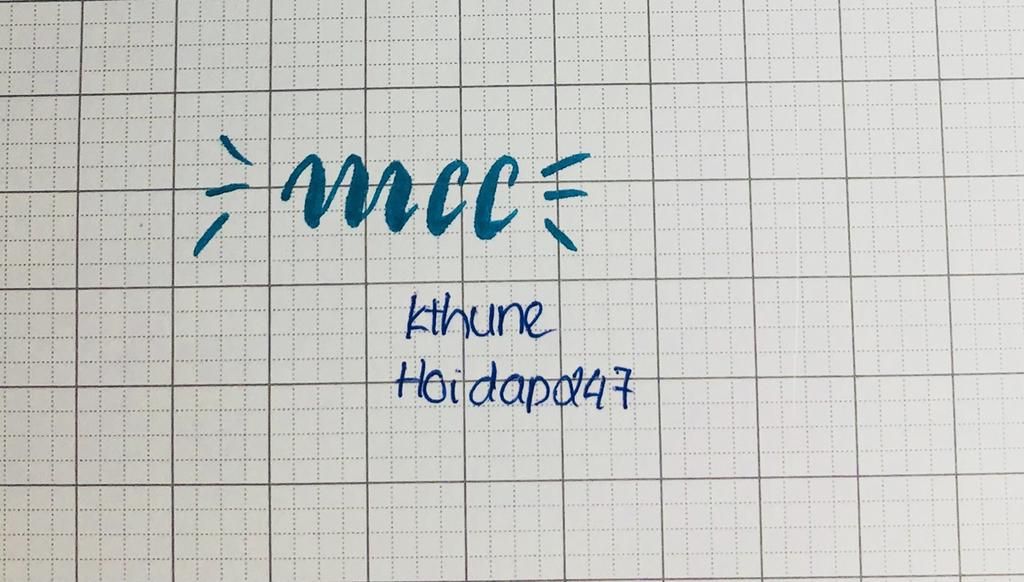 mcc
kthune
Hoidap247